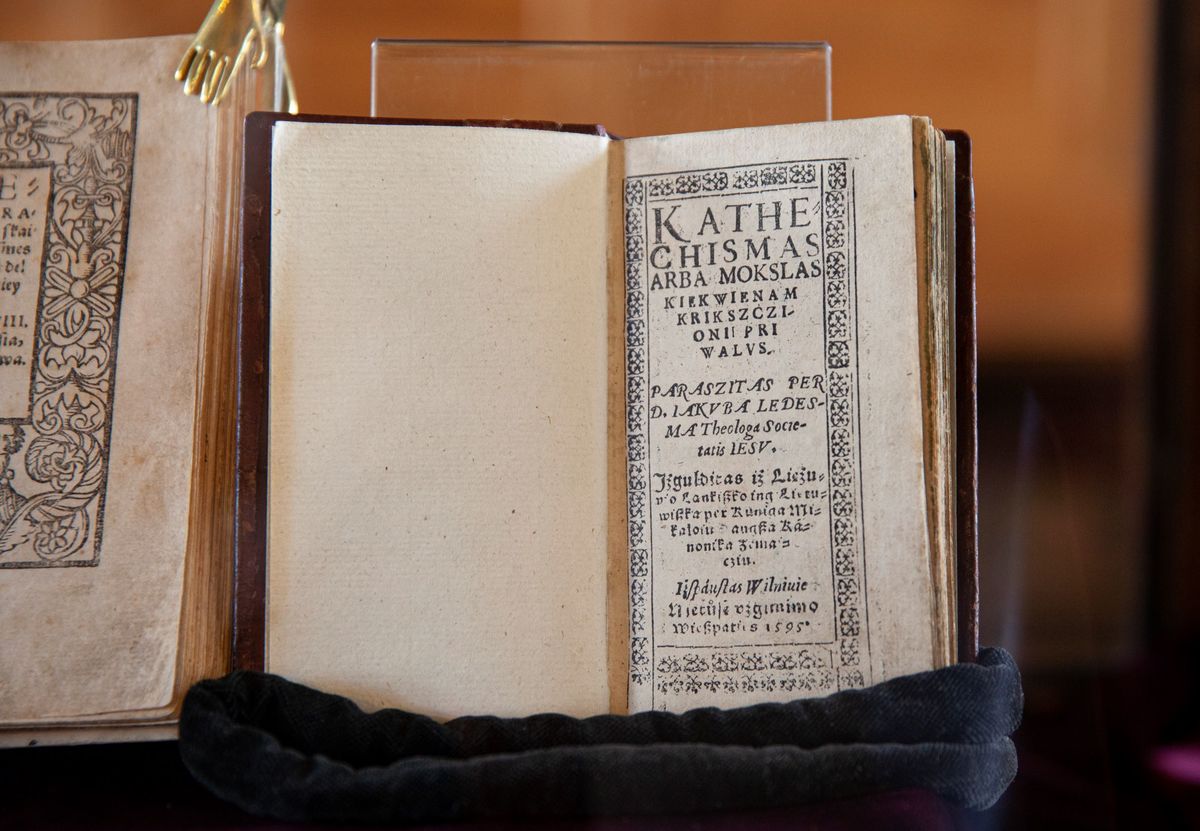 E⸗
RA⸗
ſkai
del
VIII.
wa.
KATHE⸗
CHISMAS
ARBA MOKSLAS
KIEKWIENAM
KRIKSZCZI-
ONII PRI
WALVS.
PARASZITAS PER
D. IAKVBA LEDES-
MA Theologa Socie-
tatis IESV.
Iżgulditas iż Liężu-
wio Lankißko ing Lietu⸗
wißka per Kuniga Mi⸗
kaloiu Ka⸗
nonika Żema⸗
cziu.
Ißſpauſtas Wilniuie
Metůſe vżgimimo
Wießpaties 1595.